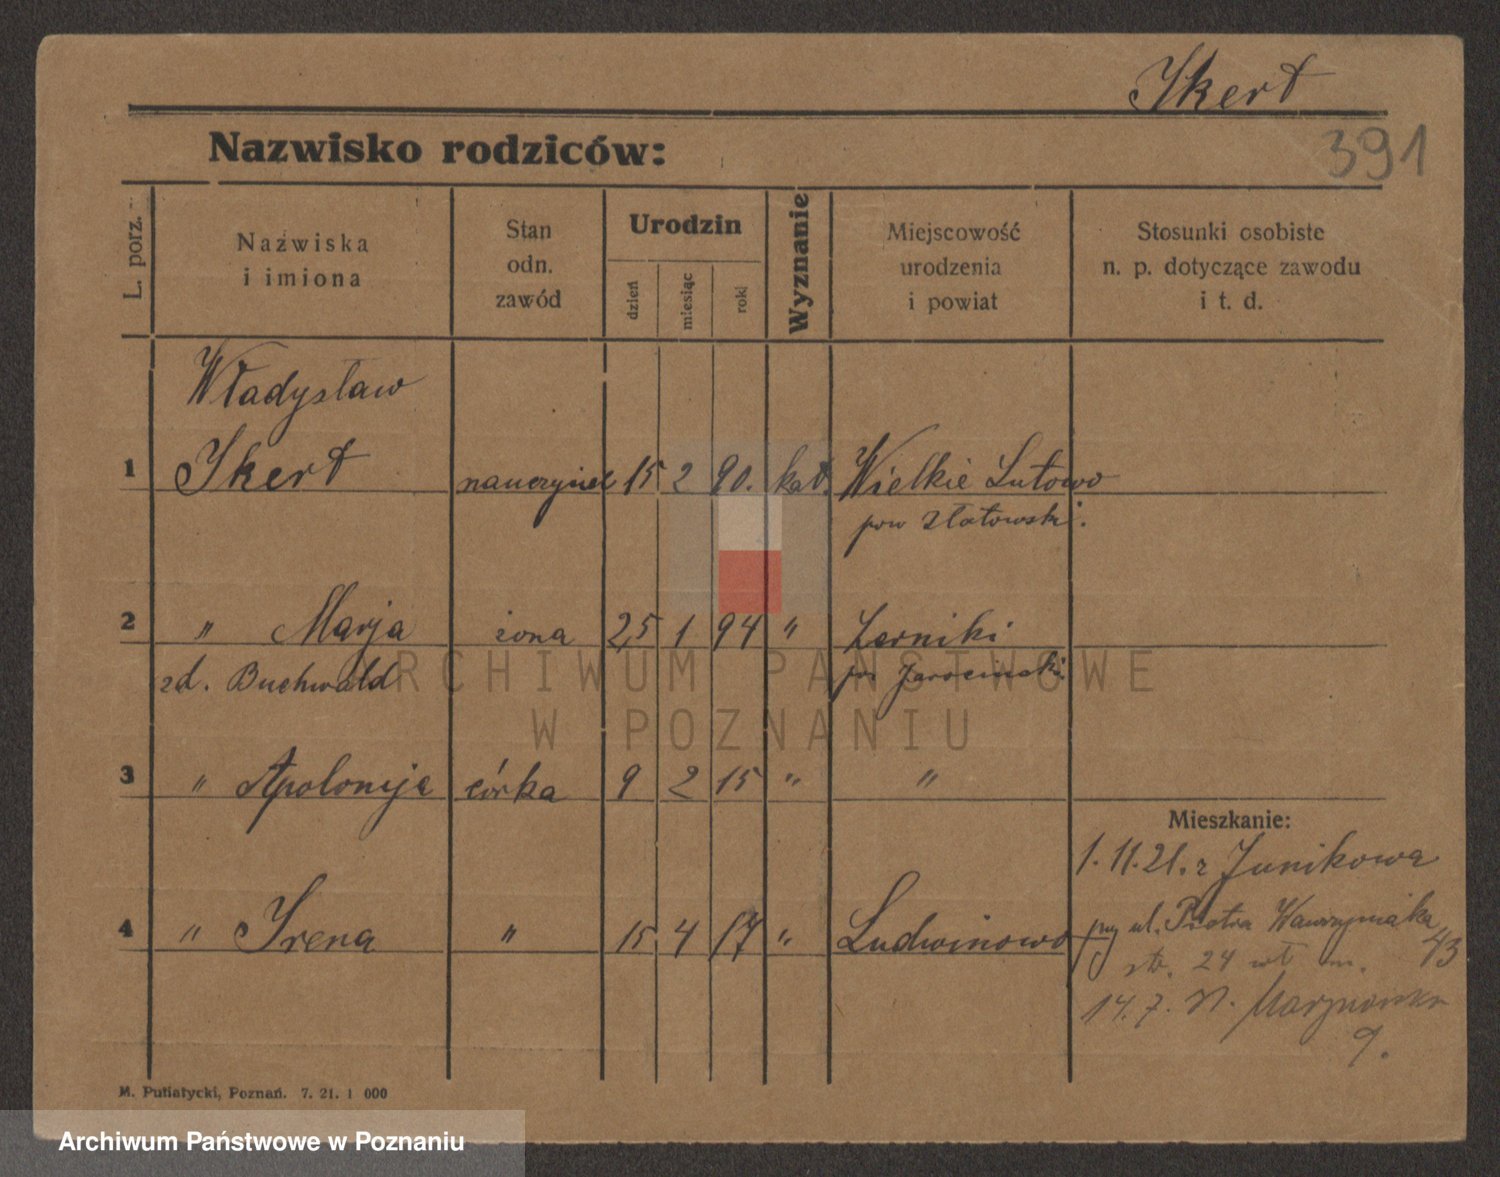 Ikert
391
Nazwisko rodziców:
L. porz.
Nazwiska
i imiona
Stan
odn.
zawód
Urodzin
dzień
miesiąc
rok
Wyznanie
Miejscowość
urodzenia
i powiat
Stosunki osobiste
n. p. dotyczące zawodu
i t. d.
Władysław
1 Ikert nauczyciel 15 2 90. kat. Wielkie Lutowo
pow Złotowski.
2 " Marja żona 25 1 94 " Żerniki
zd. Buchwald Jarocinski
3 " Apolonija córka 9 2 15 " "
Mieszkanie:
1. 11. 21. z Junikowa
4 " Irena " 15 4 17 " Ludwinowo
przy ul. Piotra Wawrzyniaka
24 m. 43
14. 7.
9.
M. Putiatycki, Poznań. 7. 21. 1 000
ARCHIWUM PAŃSTWOWE
W POZNANIU
Archiwum Państwowe w Poznaniu